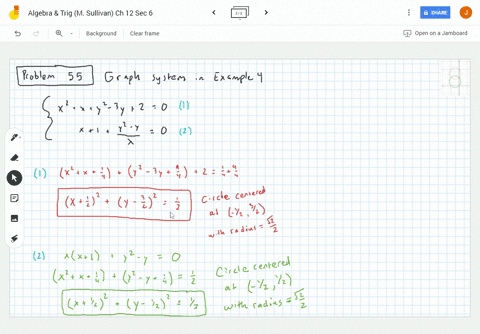 Algebra & Trig (M. Sullivan) Ch 12 Sec 6
1/1
SHARE
J
Background
Clear frame
Open on a Jamboard
Problem 55 Graph system in Example 4
x² + x + y² - 3y + 2 = 0 (1)
x + 1 + (y² - y)/x = 0 (2)
(1) (x² + x + 1/4) + (y² - 3y + 9/4) + 2 = 1/4 + 9/4
(x + 1/2)² + (y - 3/2)² = 1/2
Circle centered
at (-1/2, 3/2)
with radius = √2/2
(2) x(x+1) + y² - y = 0
(x² + x + 1/4) + (y² - y + 1/4) = 1/2
(x + 1/2)² + (y - 1/2)² = 1/2
Circle centered
at (-1/2, 1/2)
with radius = √2/2